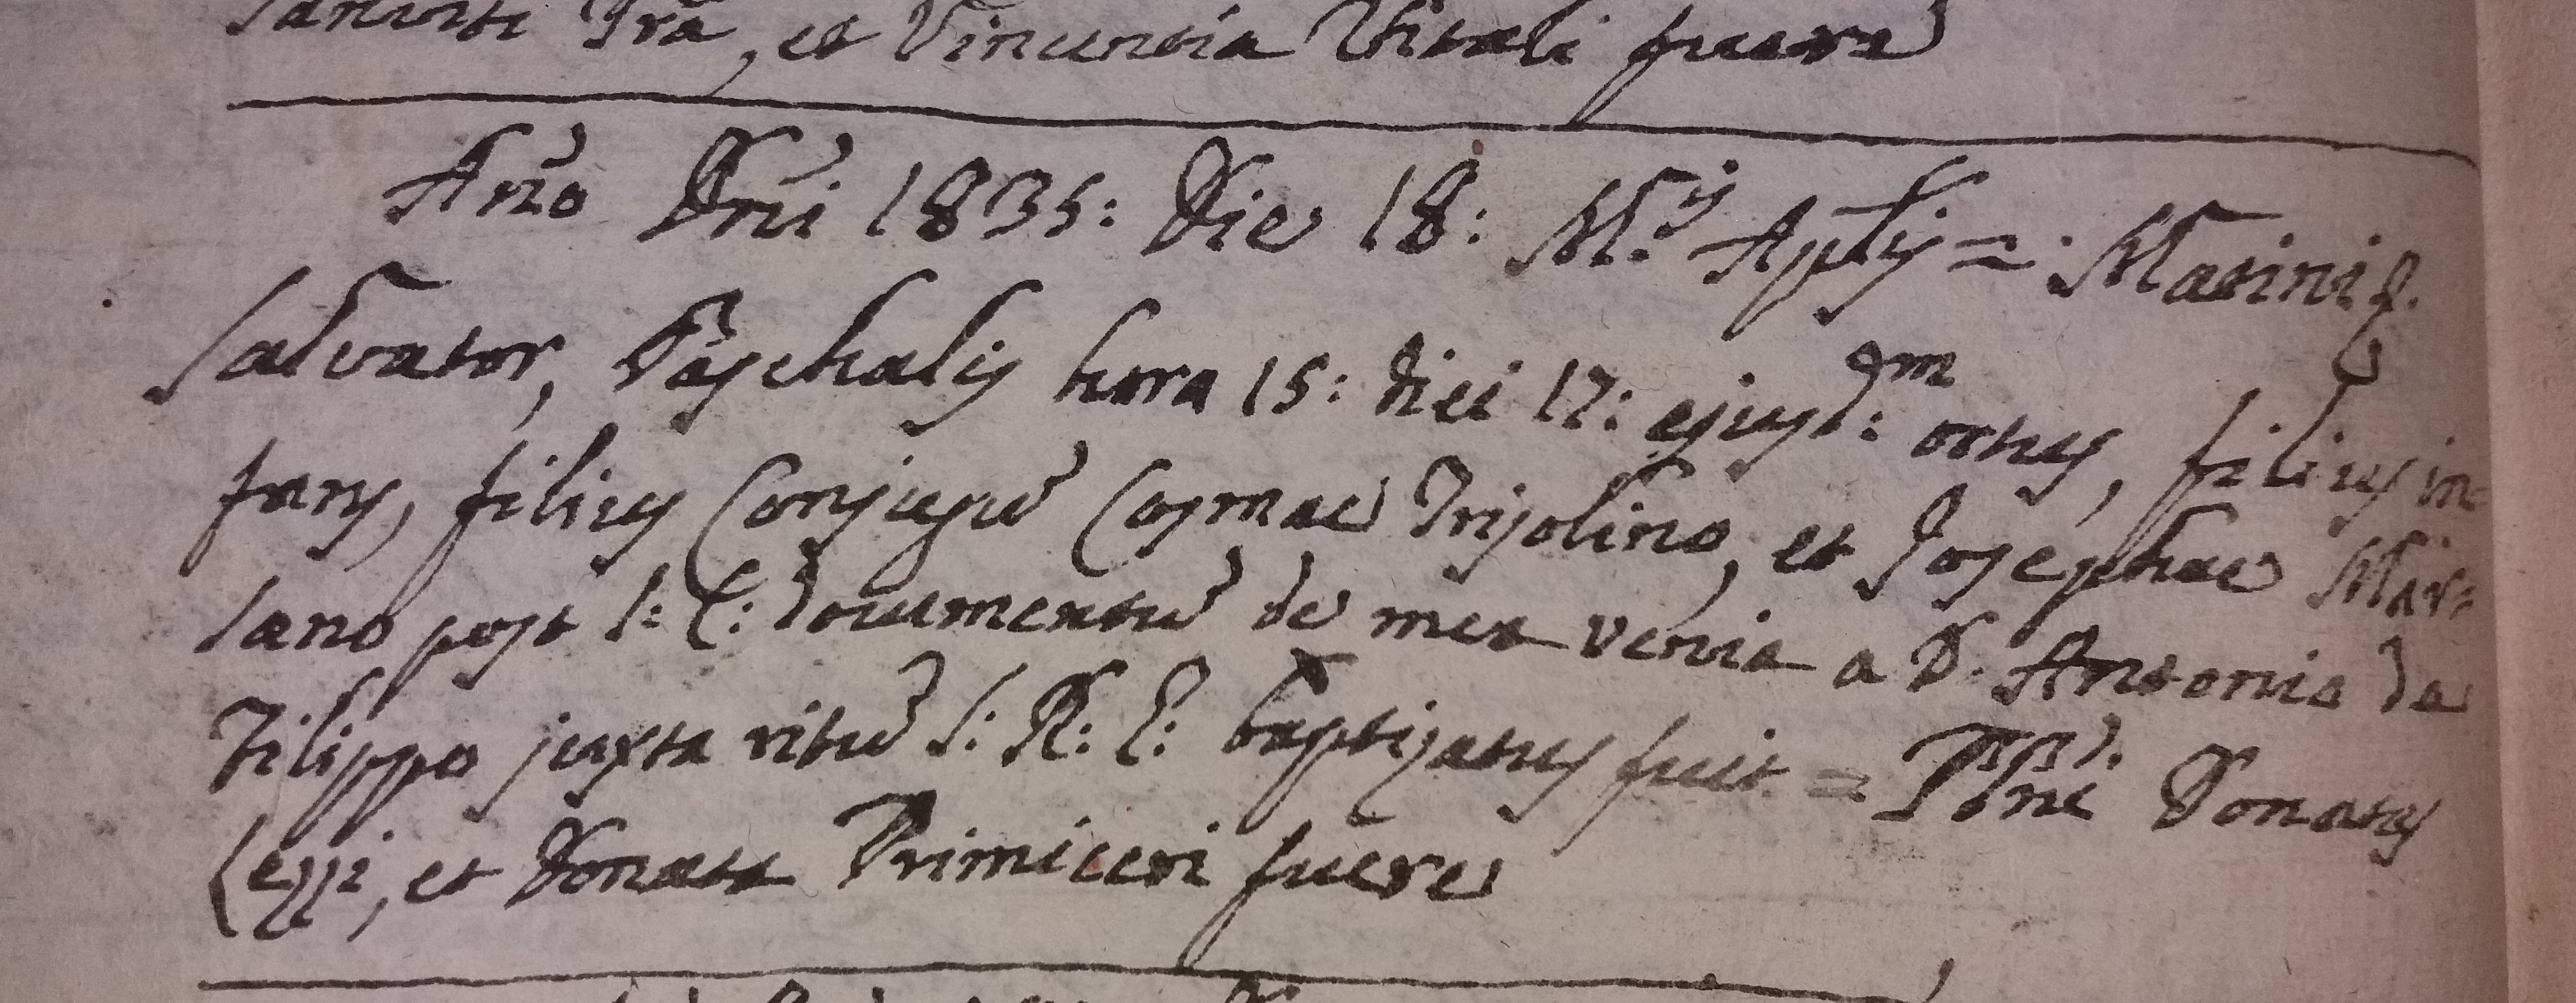 et Vincentia Vitali fuere
Año Dñi 1835: Die 18: M.ij Aplis = Matini f.
Salvator, Paschalis hora 15: diei 17: ejusd:m ortus, filius in=
fans, filius Conjugū Cosmae Trisolino, et Josephae Mar=
lano post l: C: documentū de mea venia a D. Antonio de
Filippo juxta ritū S: R: E: baptizatus fuit = Pbri Donatus
Lezzi, et Donata Primiceri fuere